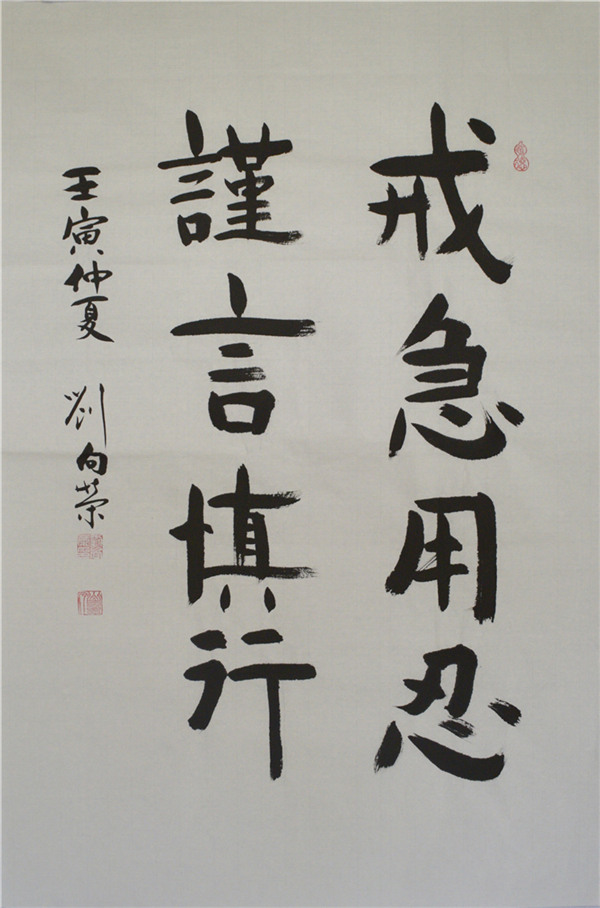 戒急用忍
謹言慎行
壬寅仲夏 劉向榮